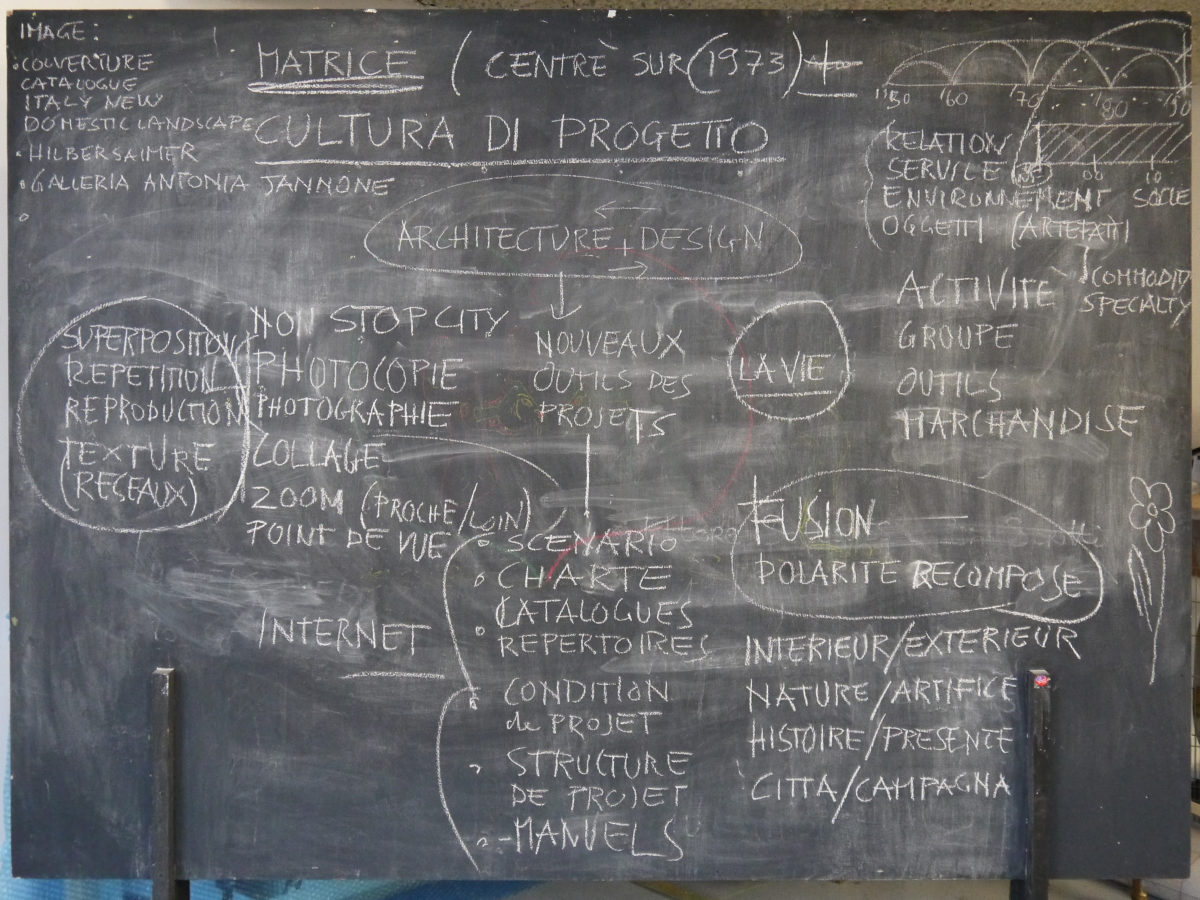 IMAGE:
COUVERTURE
CATALOGUE
ITALY NEW
DOMESTIC LANDSCAPE
HILBERSAIMER
GALLERIA ANTONIA JANNONE
MATRICE (CENTRÈ SUR (1973)
CULTURA DI PROGETTO
ARCHITECTURE + DESIGN
'60 '70 '80 '90
00 10
RELATION
SERVICE
ENVIRONNEMENT SOCLE
OGGETTI (ARTEFATTI
COMMODITY
SPECIALTY
ACTIVITE
GROUPE
OUTILS
MARCHANDISE
SUPERPOSITION
REPETITION
REPRODUCTION
TEXTURE
(RESEAUX)
NON STOP CITY
PHOTOCOPIE
PHOTOGRAPHIE
COLLAGE
ZOOM (PROCHE/LOIN)
POINT DE VUE
INTERNET
NOUVEAUX
OUTILS DES
PROJETS
LA VIE
SCENARIO
CHARTE
CATALOGUES
REPERTOIRES
CONDITION
de PROJET
STRUCTURE
DE PROJET
-MANUELS
FUSION
POLARITE RECOMPOSE
INTERIEUR/EXTERIEUR
NATURE/ARTIFICE
HISTOIRE/PRESENTE
CITTA/CAMPAGNA